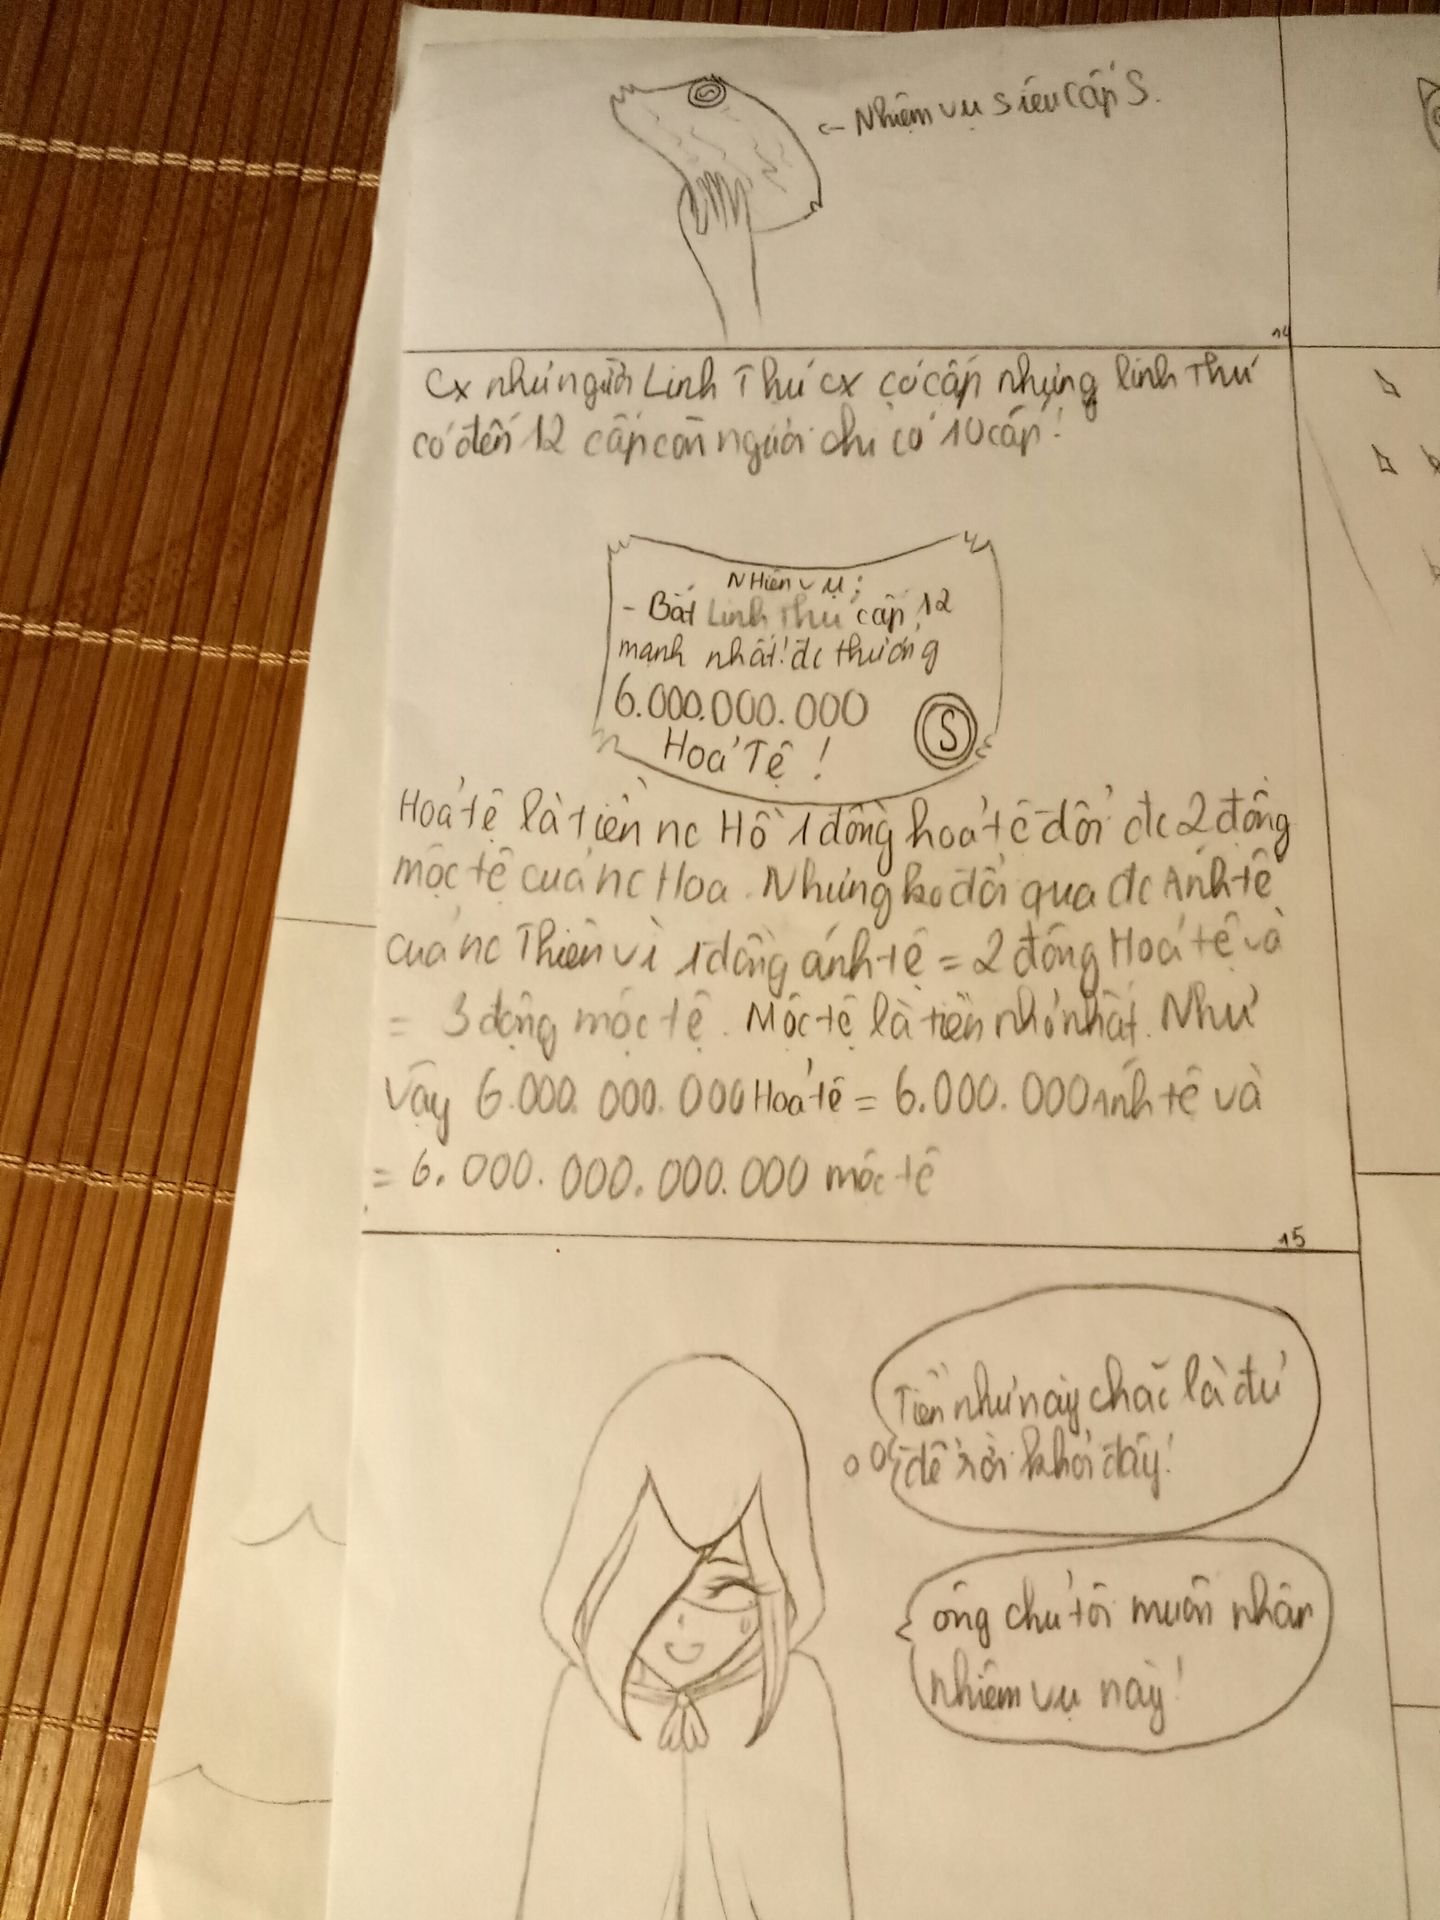 <- Nhiệm vụ siêu cấp S.
14
Cx như người Linh Thú cx có cấp nhưng linh thú
có đến 12 cấp còn người chỉ có 10 cấp!
NHiệm vụ:
- Bắt Linh Thú cấp 12
mạnh nhất! đc thưởng
6.000.000.000
Hoả Tệ !
S
Hoả tệ là tiền nc Hồ 1 đồng hoả tệ đổi đc 2 đồng
mộc tệ của nc Hoa. Nhưng ko đổi qua đc Ánh tệ
của nc Thiên vì 1 đồng ánh tệ = 2 đồng Hoả tệ và
= 3 đồng mộc tệ. Mộc tệ là tiền nhỏ nhất. Như
vậy 6.000.000.000 Hoả tệ = 6.000.000 ánh tệ và
= 6.000.000.000.000 mộc tệ
15
Tiền như này chắc là đủ
để rời khỏi đây!
ông chủ tôi muốn nhận
nhiệm vụ này!